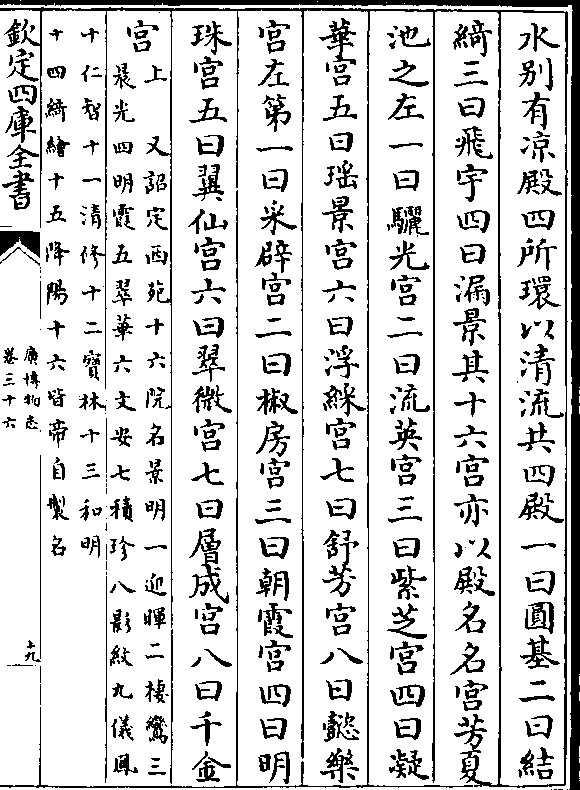 水别有凉殿四所環以清流共四殿一曰圓基二曰結
綺三曰飛宇四曰漏景其十六宫亦以殿名名宫芳夏
池之左一曰驪光宫二曰流英宫三曰紫芝宫四曰凝
華宫五曰瑶景宫六曰浮綵宫七曰舒芳宫八曰懿樂
宫左第一曰采辟宫二曰椒房宫三曰朝霞宫四曰明
珠宫五曰翼仙宫六曰翠微宫七曰層成宫八曰千金
宫
上 又詔定西苑十六院名景明一迎暉二棲鸞三
晨光四明霞五翠華六文安七積珍八影紋九儀鳳
十仁智十一清修十二寳林十三和明
十四綺繪十五降陽十六皆帝自製名
欽定四庫全書
廣博物志
卷三十六
十九